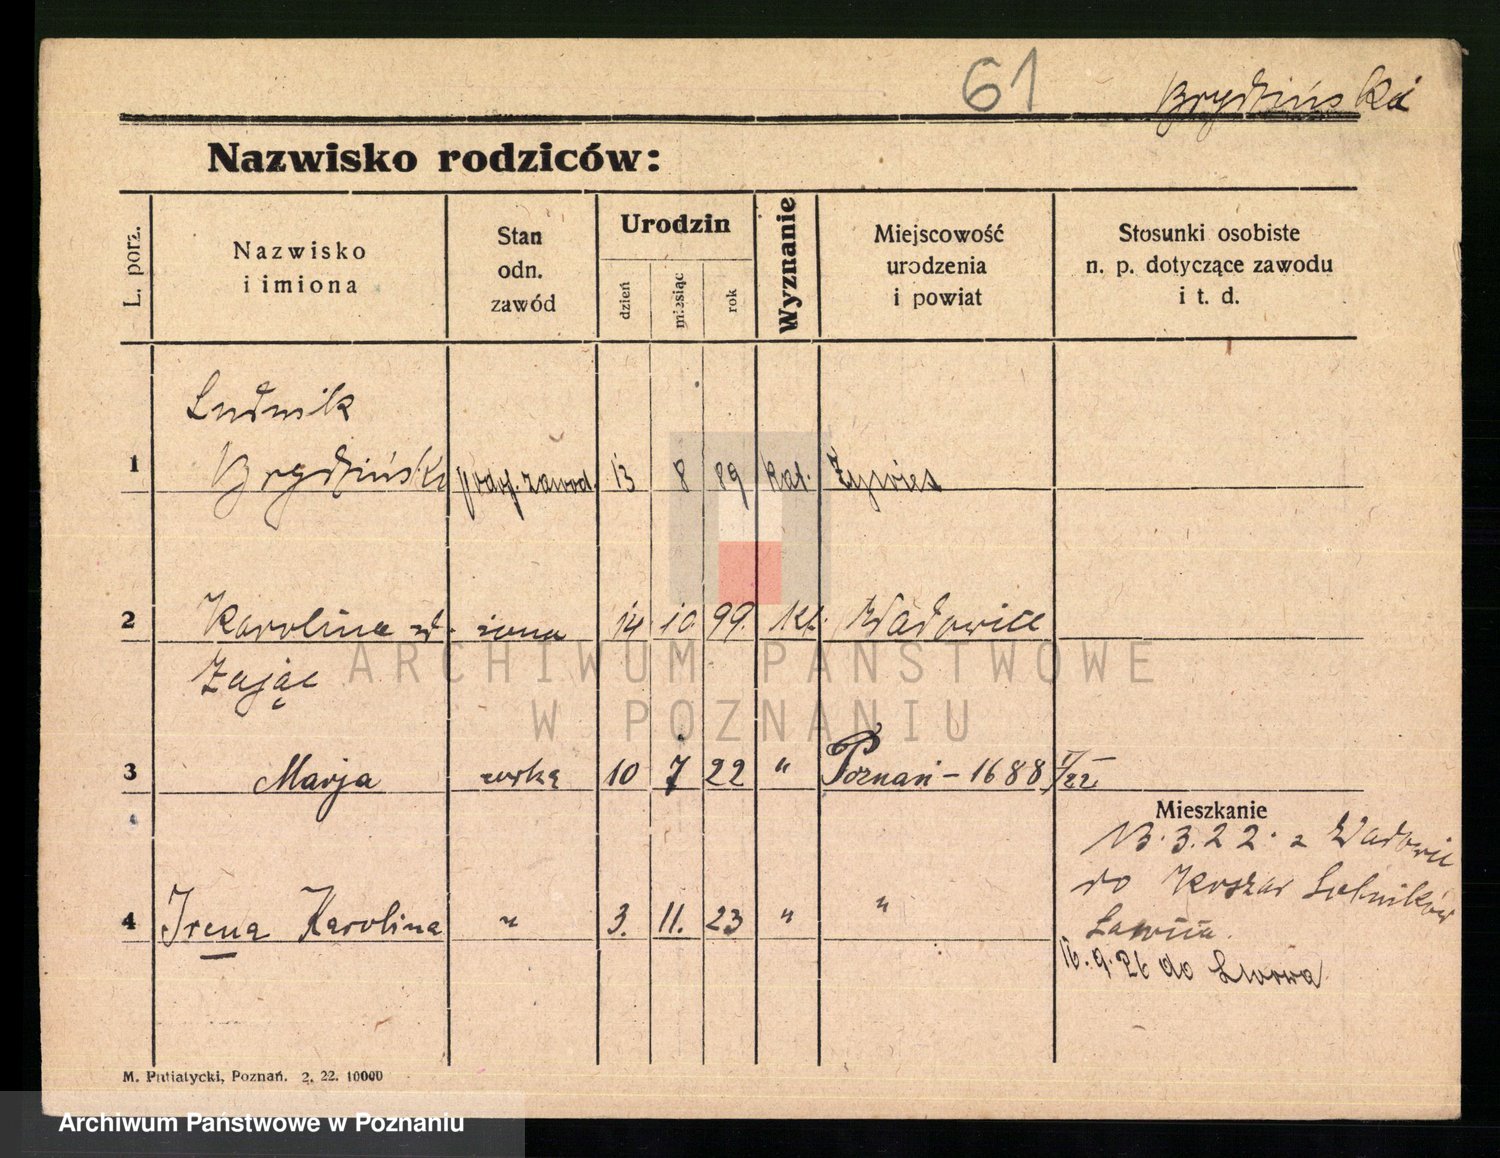 61
Brydziński
Nazwisko rodziców:
L. porz.
Nazwisko
i imiona
Stan
odn.
zawód
Urodzin
dzień
miesiąc
rok
Wyznanie
Miejscowość
urodzenia
i powiat
Stosunki osobiste
n. p. dotyczące zawodu
i t. d.
Ludwik
1 Brydziński podof. zawod. 13 8 89 kat. Żywiec
2 Karolina żona 14 10 99. kt. Wadowice
Zając
3 Marja córka 10 7 22 " Poznań - 1688 V/22
Mieszkanie
13.3.22. z Wadowic
do Koszar Lotników
Ławica.
4 Irena Karolina " 3. 11. 23 " "
16.9.26 do Lwowa
ARCHIWUM PAŃSTWOWE
W POZNANIU
M. Putiatycki, Poznań. 2. 22. 10000
Archiwum Państwowe w Poznaniu